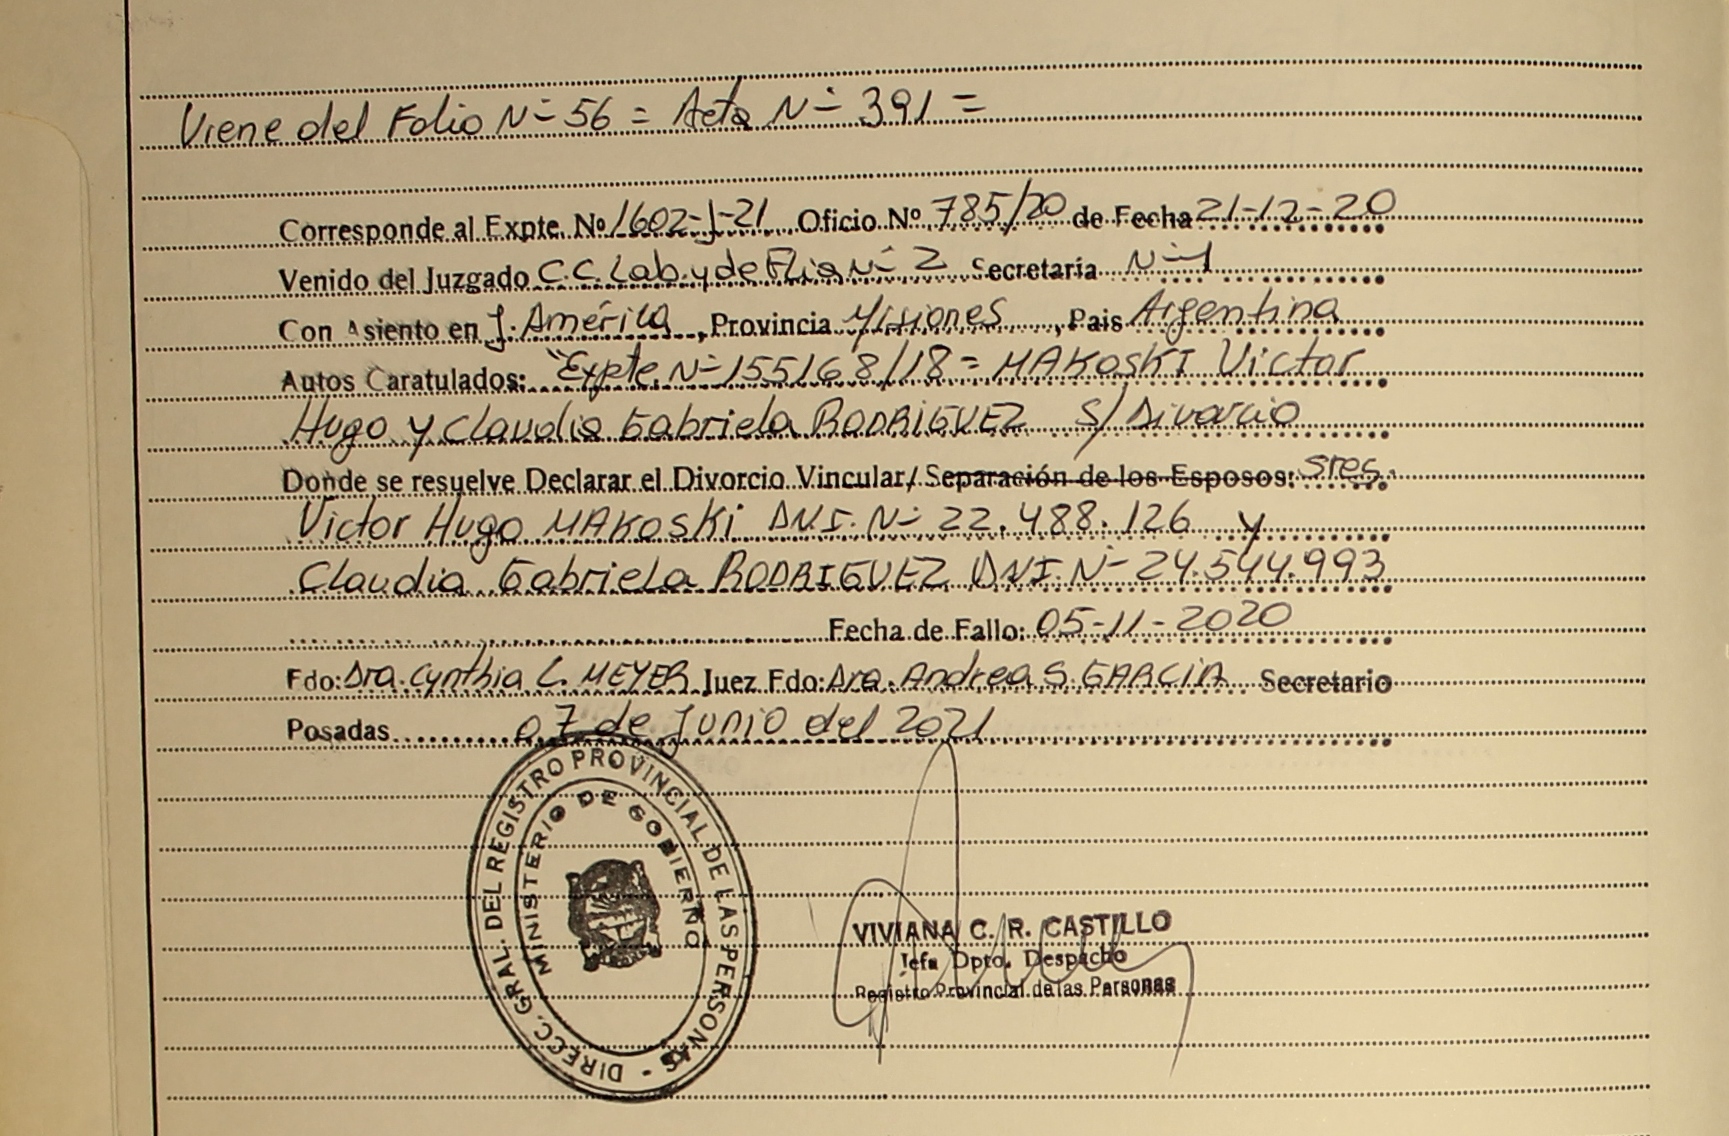 Viene del Folio N° 56 = Acta N° 391 =
Corresponde al Expte. Nº 1602-J-21 Oficio Nº 785/20 de Fecha 21-12-20
Venido del Juzgado C.C. Lab. y de Flia N° 2 Secretaría N° 1
Con Asiento en J. América, Provincia Misiones, Pais Argentina
Autos Caratulados: "Expte. N° 155168/18 = MAKOSKI Victor
Hugo y Claudia Gabriela RODRIGUEZ S/Divorcio
Donde se resuelve Declarar el Divorcio Vincular/ Separación de los Esposos: Sres.
Victor Hugo MAKOSKI DNI. N° 22.488.126 y
Claudia Gabriela RODRIGUEZ DNI. N° 24.544.993
Fecha de Fallo: 05-11-2020
Fdo: Dra. Cynthia L. MEYER Juez Fdo: Dra. Andrea S. GARCIA Secretario
Posadas 07 de Junio del 2021
DIRECC. GRAL. DEL REGISTRO PROVINCIAL DE LAS PERSONAS -
MINISTERIO DE GOBIERNO
VIVIANA C. R. CASTILLO
Jefa Dpto. Despacho
Registro Provincial de las Personas